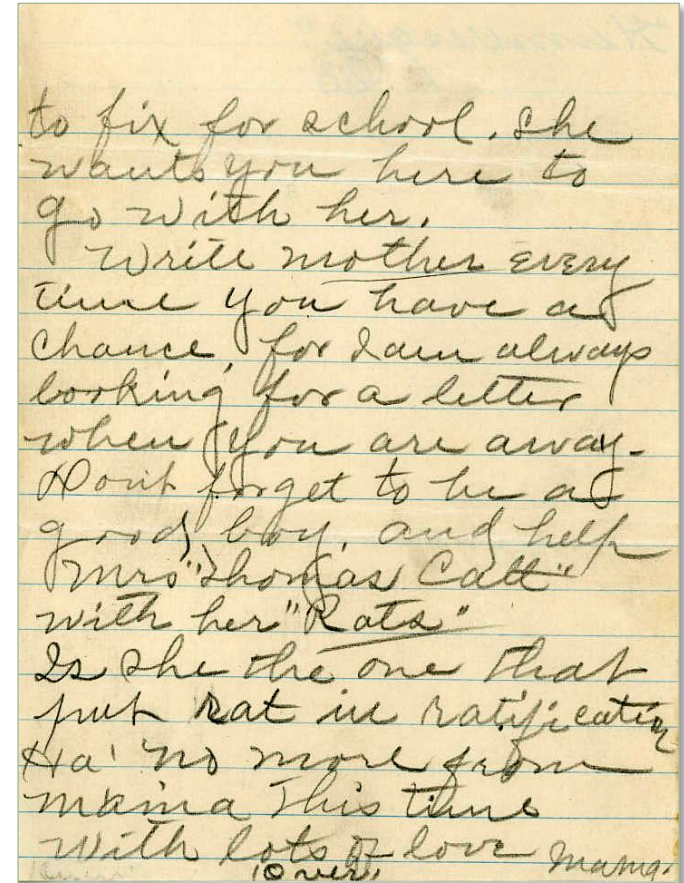 to fix for school. She
wants you here to
go with her.
Write mother every
time you have a
chance, for I am always
looking for a letter
when you are away.
Dont forget to be a
good boy, and help
Mrs "Thomas Catt"
with her "Rats"
Is she the one that
put rat in ratification
Ha! no more from
mama This time
With lots of love Mama.
(Over)